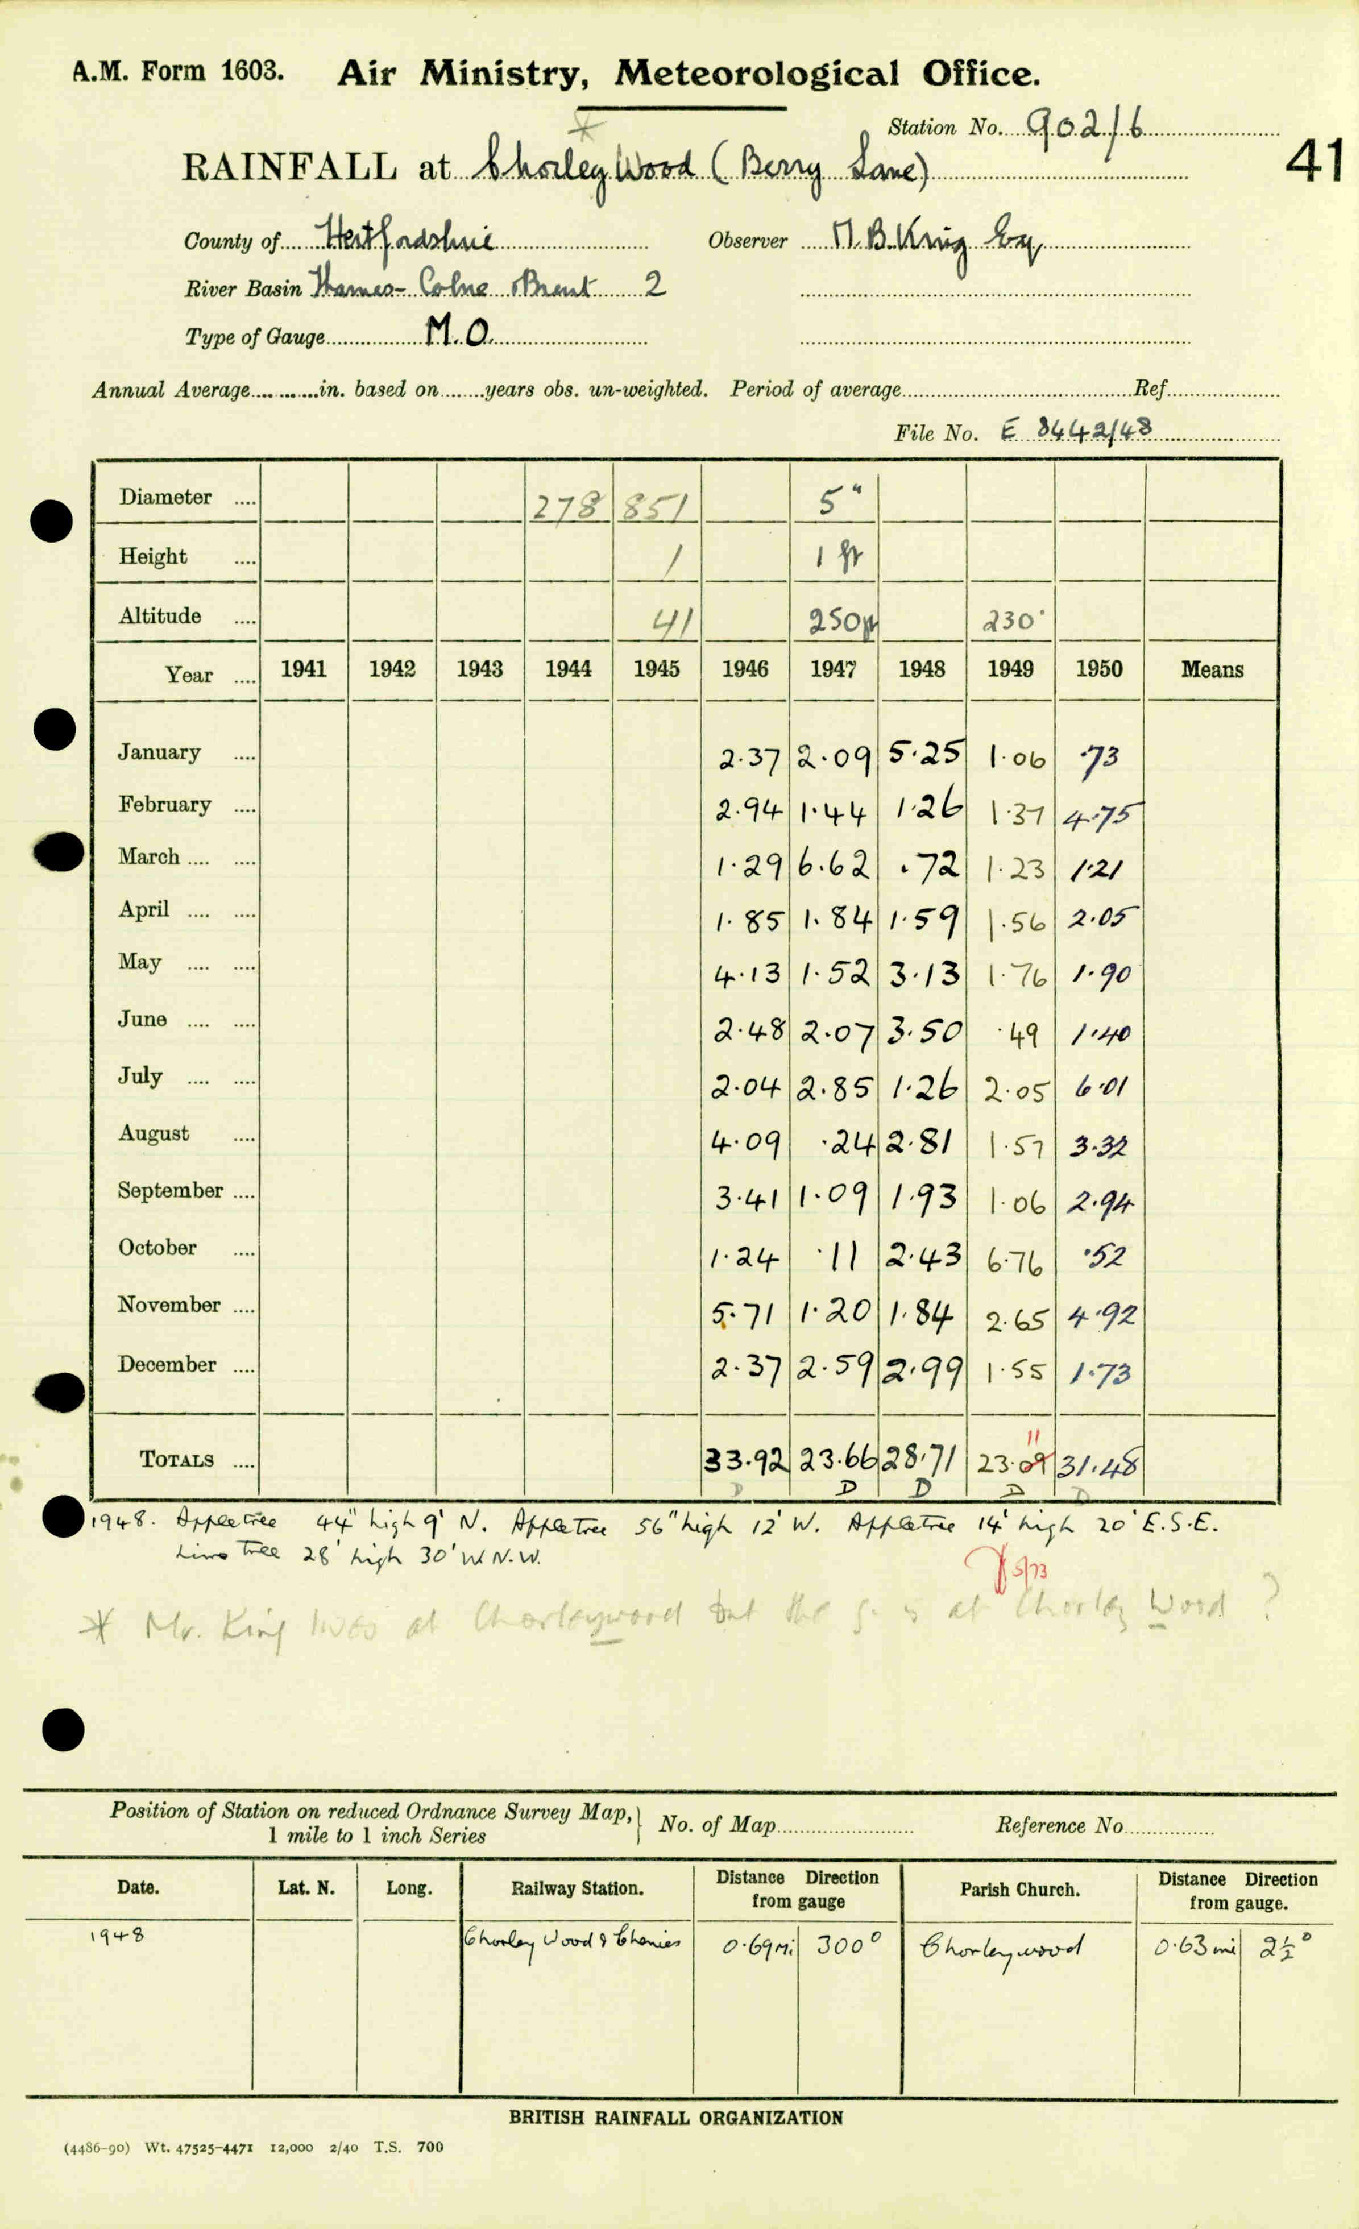 A.M. Form 1603. Air Ministry, Meteorological Office.
Station No. 902/6
41
RAINFALL at Chorley Wood (Berry Lane)
County of Hertfordshire Observer M.B. King Esq
River Basin Thames- Colne & Brent 2
Type of Gauge M.O.
Annual Average in. based on years obs. un-weighted. Period of average Ref
File No. E 8442/48
Diameter 278 851 5"
Height 1 1 ft
Altitude 41 250 ft 230'
Year 1941 1942 1943 1944 1945 1946 1947 1948 1949 1950 Means
January 2.37 2.09 5.25 1.06 .73
February 2.94 1.44 1.26 1.37 4.75
March 1.29 6.62 .72 1.23 1.21
April 1.85 1.84 1.59 1.56 2.05
May 4.13 1.52 3.13 1.76 1.90
June 2.48 2.07 3.50 .49 1.40
July 2.04 2.85 1.26 2.05 6.01
August 4.09 .24 2.81 1.57 3.32
September 3.41 1.09 1.93 1.06 2.94
October 1.24 .11 2.43 6.76 .52
November 5.71 1.20 1.84 2.65 4.92
December 2.37 2.59 2.99 1.55 1.73
11
TOTALS 33.92 23.66 28.71 23.09 31.48
D D D D D
1948. Appletree 44" high 9' N. Appletree 56" high 12' W. Appletree 14' high 20' E.S.E.
Lime Tree 28' high 30' W.N.W.
5/73
* Mr. King lives at Chorleywood but the g. is at Chorley Wood ?
Position of Station on reduced Ordnance Survey Map, No. of Map Reference No
1 mile to 1 inch Series
Date. Lat. N. Long. Railway Station. Distance Direction from gauge Parish Church. Distance Direction from gauge.
1948 Chorley Wood & Chenies 0.69 mi 300° Chorleywood 0.63 mi 2½°
BRITISH RAINFALL ORGANIZATION
(4486-90) Wt. 47525-4471 12,000 2/40 T.S. 700